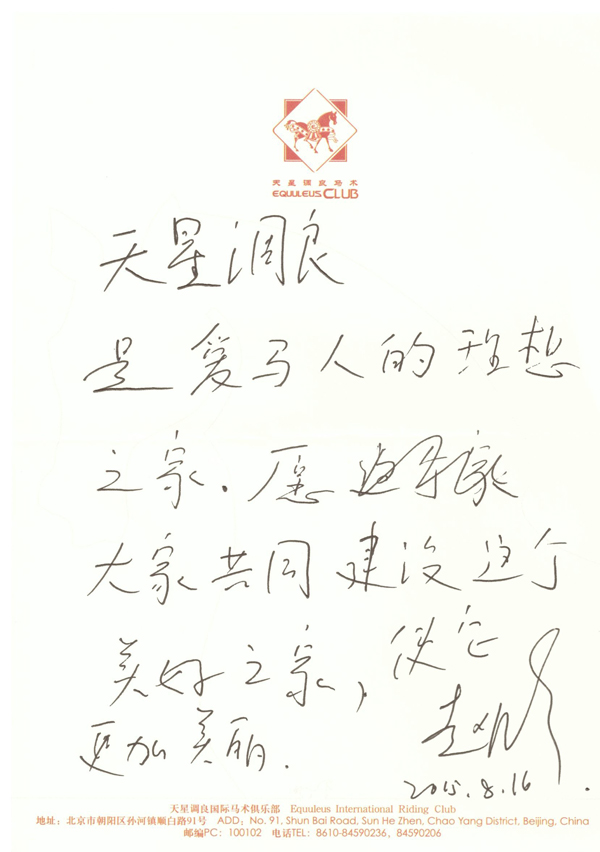 天星调良马术
EQUULEUS CLUB
天星调良
是爱马人的理想
之家.愿
大家共同建设这个
美好之家,使它
更加美丽.
2015.8.16.
天星调良国际马术俱乐部 Equuleus International Riding Club
地址:北京市朝阳区孙河镇顺白路91号 ADD: No. 91, Shun Bai Road, Sun He Zhen, Chao Yang District, Beijing, China
邮编PC: 100102 电话TEL: 8610-84590236, 84590206